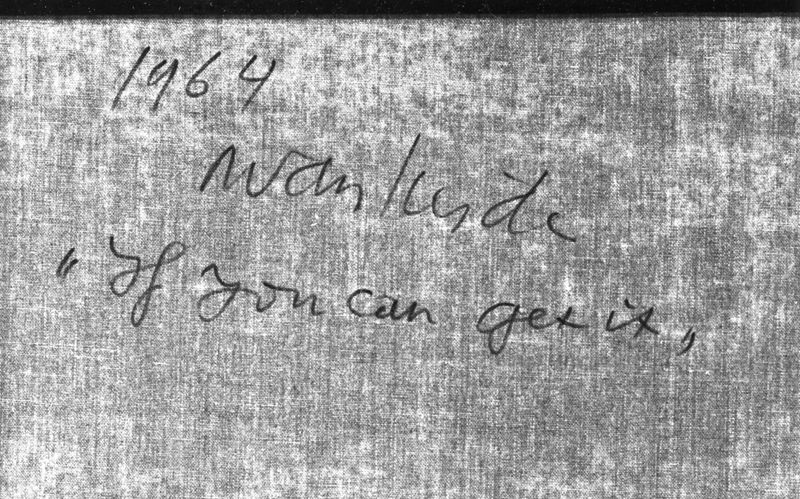 1964
„If you can get it„